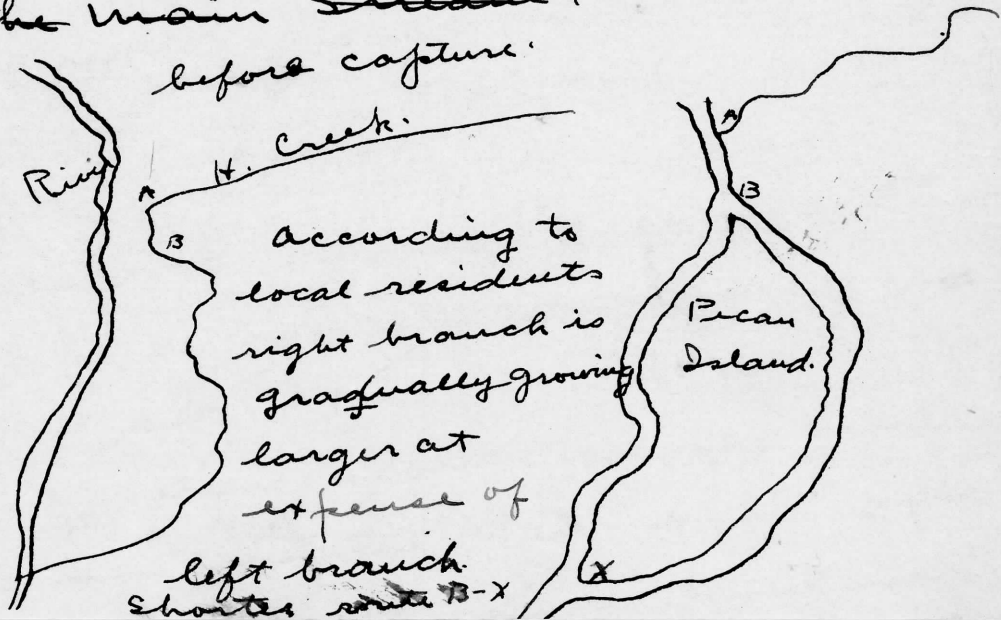 the main stream.
before capture.
H. Creek.
River
A
B
according to
local residents
right branch is
gradually growing
larger at
expense of
left branch.
Shortes route B-X
A
B
Pecan
Island.
X